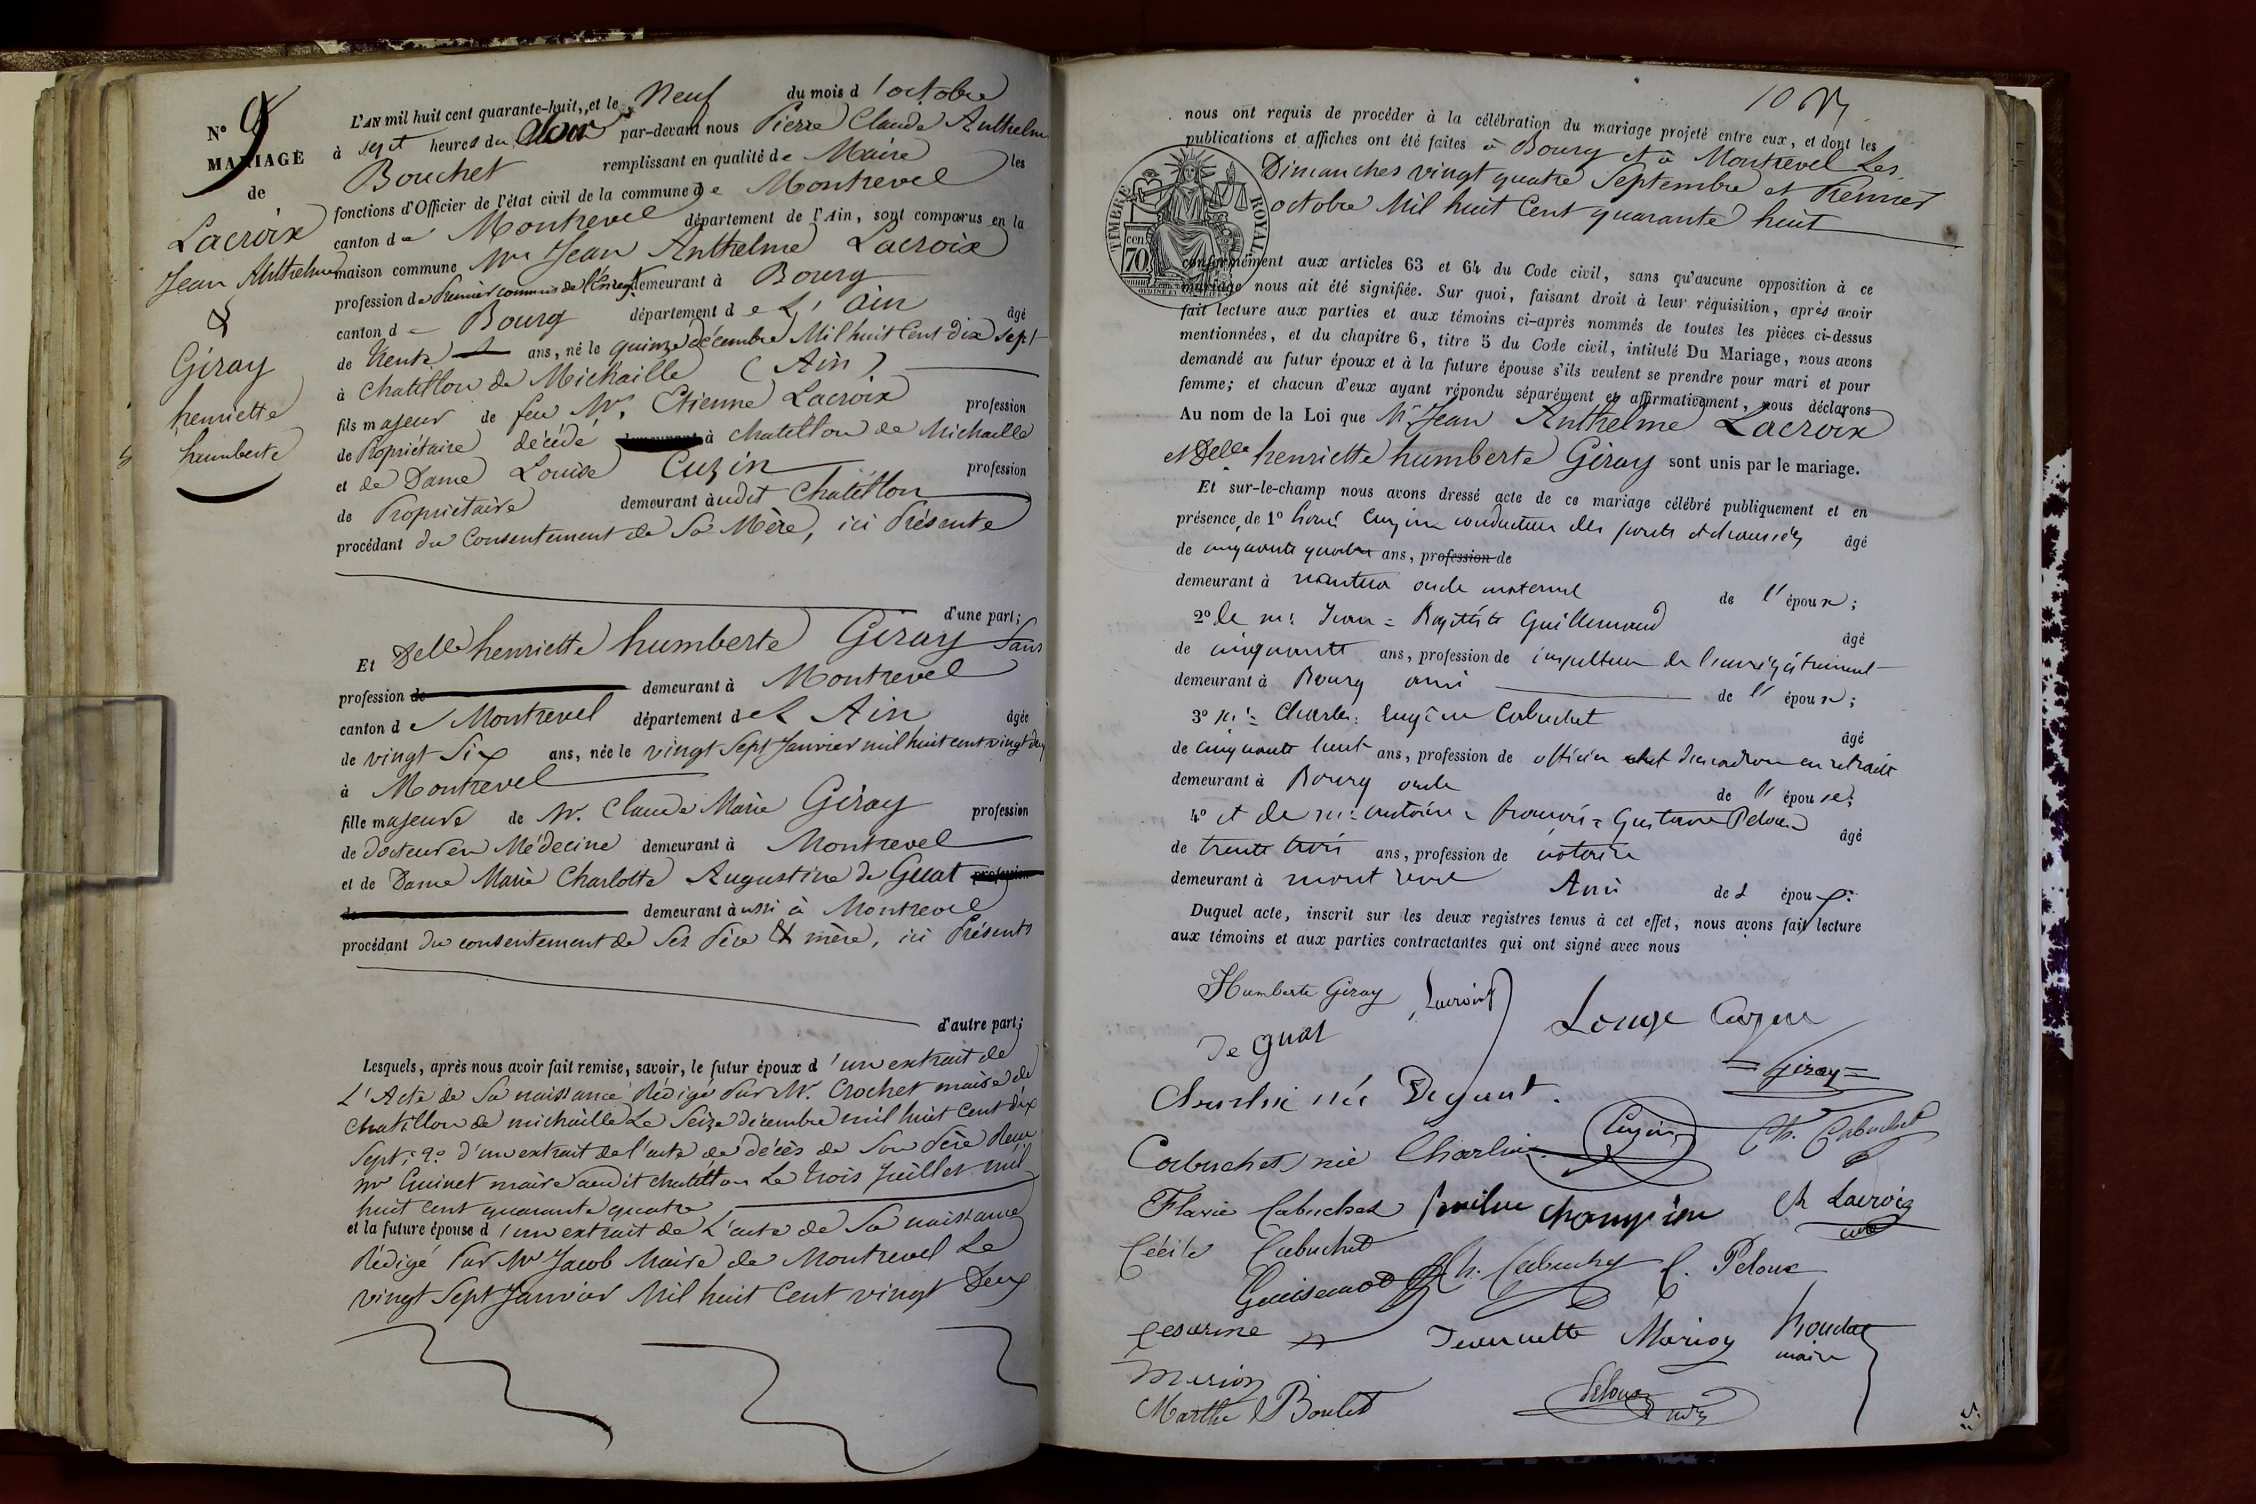 N° 9
MARIAGE
de
Lacroix
Jean Anthelme
&
Giray
henriette
humberte
L'AN mil huit cent quarante-huit, et le Neuf du mois d'octobre
à sept heures du soir par-devant nous Pierre Claude Anthelme
Bouchet remplissant en qualité de Maire les
fonctions d'Officier de l'état civil de la commune de Montrevel
canton de Montrevel département de l'Ain, sont comparus en la
maison commune Mr Jean Anthelme Lacroix
profession de Premier commis de l'Enreg. demeurant à Bourg
canton de Bourg département de L'ain âgé
de trente ans, né le quinze décembre Mil huit Cent dix sept
à Chatillon de Michaille (Ain)
fils majeur de feu Mr. Etienne Lacroix profession
de Propriétaire décédé à Chatillon de Michaille
et de Dame Louise Cuzin profession
de Propriétaire demeurant audit Chatillon
procédant du Consentement de Sa Mère, ici Présente
d'une part;
Et Delle henriette humberte Giray Sans
profession de demeurant à Montrevel
canton de Montrevel département de L Ain âgée
de vingt Six ans, née le vingt Sept Janvier mil huit cent vingt deux
à Montrevel
fille majeure de Mr. Claude Marie Giray profession
de docteur en Médecine demeurant à Montrevel
et de Dame Marie Charlotte Augustine de Guat profession
de demeurant aussi à Montrevel
procédant du consentement de Ses Père & mère, ici Présents
d'autre part;
Lesquels, après nous avoir fait remise, savoir, le futur époux d'un extrait de
L'Acte de Sa naissance Rédigé Par Mr. Crochet maire de
Chatillon de michaille Le Seize décembre mil huit Cent dix
Sept; 2° d'un extrait de l'acte de décès de Son Père Reçu
Mr Guinet maire audit chatillon Le trois Juillet mil
huit cent quarante quatre
et la future épouse d'un extrait de L'acte de Sa naissance
Rédigé Par Mr Jacob Maire de Montrevel Le
vingt Sept Janvier Mil huit Cent vingt Deux
10
nous ont requis de procéder à la célébration du mariage projeté entre eux, et dont les
publications et affiches ont été faites à Bourg et à Montrevel Les
Dimanches vingt quatre Septembre et Premier
octobre Mil huit Cent quarante huit
TIMBRE ROYAL
cen.
70
conformément aux articles 63 et 64 du Code civil, sans qu'aucune opposition à ce
mariage nous ait été signifiée. Sur quoi, faisant droit à leur réquisition, après avoir
fait lecture aux parties et aux témoins ci-après nommés de toutes les pièces ci-dessus
mentionnées, et du chapitre 6, titre 5 du Code civil, intitulé Du Mariage, nous avons
demandé au futur époux et à la future épouse s'ils veulent se prendre pour mari et pour
femme; et chacun d'eux ayant répondu séparément et affirmativement, nous déclarons
Au nom de la Loi que Mr. Jean Anthelme Lacroix
et Delle henriette humberte Giray sont unis par le mariage.
Et sur-le-champ nous avons dressé acte de ce mariage célébré publiquement et en
présence, de 1° Cuzin conducteur des ponts et chaussées âgé
de cinquante quatre ans, profession de
demeurant à nantua oncle maternel de l'époux;
2° de mr Jean-Baptiste Guillemaud âgé
de cinquante ans, profession de inspecteur de l'enregistrement
demeurant à Bourg ami de l'époux;
3° Mr Charles Eugène Cabuchet âgé
de cinquante huit ans, profession de officier chef d'escadron en retraite
demeurant à Bourg oncle de l'épouse;
4° et de mr antoine-françois-Gustave Peloux âgé
de trente trois ans, profession de notaire
demeurant à montrevel Ami de L époux.
Duquel acte, inscrit sur les deux registres tenus à cet effet, nous avons fait lecture
aux témoins et aux parties contractantes qui ont signé avec nous
Humberte Giray Lacroix
De Guat Louise Cuzin
Giray
née Deguat.
Cabuchet née Charlin Cuzin Ch. Cabuchet
Flavie Cabuchet champion Lacroix
Cécile Cabuchet
Ch. Cabuchet C. Peloux
Cesarine Jeannette Marion Bouchet
maire
Marion
Marthe Boulet Peloux